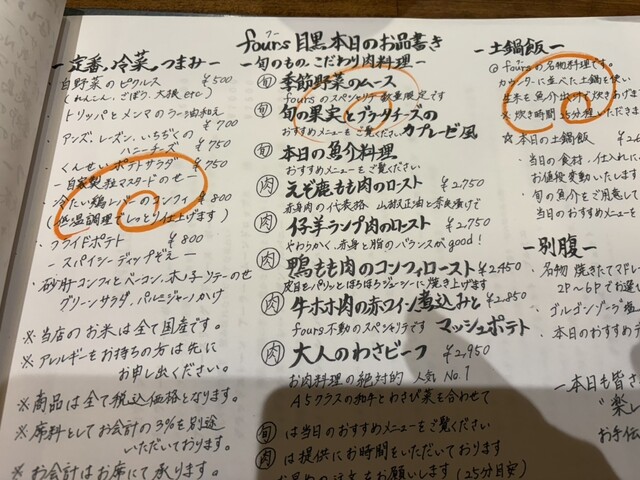 fours 目黒 本日のお品書き
- 定番、冷菜、つまみ -
白野菜のピクルス ¥500
(れんこん、ごぼう、大根 etc)
・トリッパとメンマのラー油和え
¥700
・アンズ、レーズン、いちぢくの
ハニーチーズ ¥750
・くんせいポテトサラダ ¥750
- 自家製粒マスタードのせ -
・冷たい鶏レバーのコンフィ ¥800
(低温調理でしっとり仕上げます)
・フライドポテト ¥800
- スパイシーディップ添え -
・砂肝コンフィとベーコン、木ノ子ソテーのせ
グリーンサラダ、パルミジャーノがけ
※ 当店のお米は全て国産です。
※ アレルギーをお持ちの方は先に
お申し出ください。
※ 商品は全て税込価格となります。
※ 席料としてお会計の3%を別途
いただいております。
※ お会計はお席にて承ります。
- 旬のもの、こだわり肉料理 -
旬 季節野菜のムース
foursのスペシャリテ 数量限定です
旬 旬の果実とブラータチーズの
おすすめメニューをご覧ください カプレーゼ風
旬 本日の魚介料理
おすすめメニューをご覧ください
肉 えぞ鹿もも肉のロースト ¥2,750
赤身肉の代表格 山椒醤油と奈良漬けで
肉 仔羊ランプ肉のロースト ¥2,750
やわらかく、赤身と脂のバランスがgood!
肉 鴨もも肉のコンフィロースト ¥2,450
皮目をパリッとほろほろジューシーに焼き上げます
肉 牛ホホ肉の赤ワイン煮込みと ¥2,850
fours不動のスペシャリテです マッシュポテト
肉 大人のわさビーフ ¥2,950
お肉料理の絶対的 人気 No.1
A5クラスの和牛とわさび菜を合わせて
旬 は当日のおすすめメニューをご覧ください
肉 は提供にお時間をいただいております
お早めの注文をお願いします (25分目安)
- 土鍋飯 -
◎ foursの名物料理です。
カウンターに並べた土鍋を使い
生米を魚介出汁で炊きあげます
※ 炊き時間25分程
☆ 本日の土鍋飯
・当日の食材、仕入れに
お値段変動いたします
・旬の魚介をご用意して
当日のおすすめメニュー
- 別腹 -
・名物 焼きたてマドレ
2P〜6Pでお選び
・ゴルゴンゾーラ
・本日のおすすめ
- 本日も皆さ
"楽し
お手伝